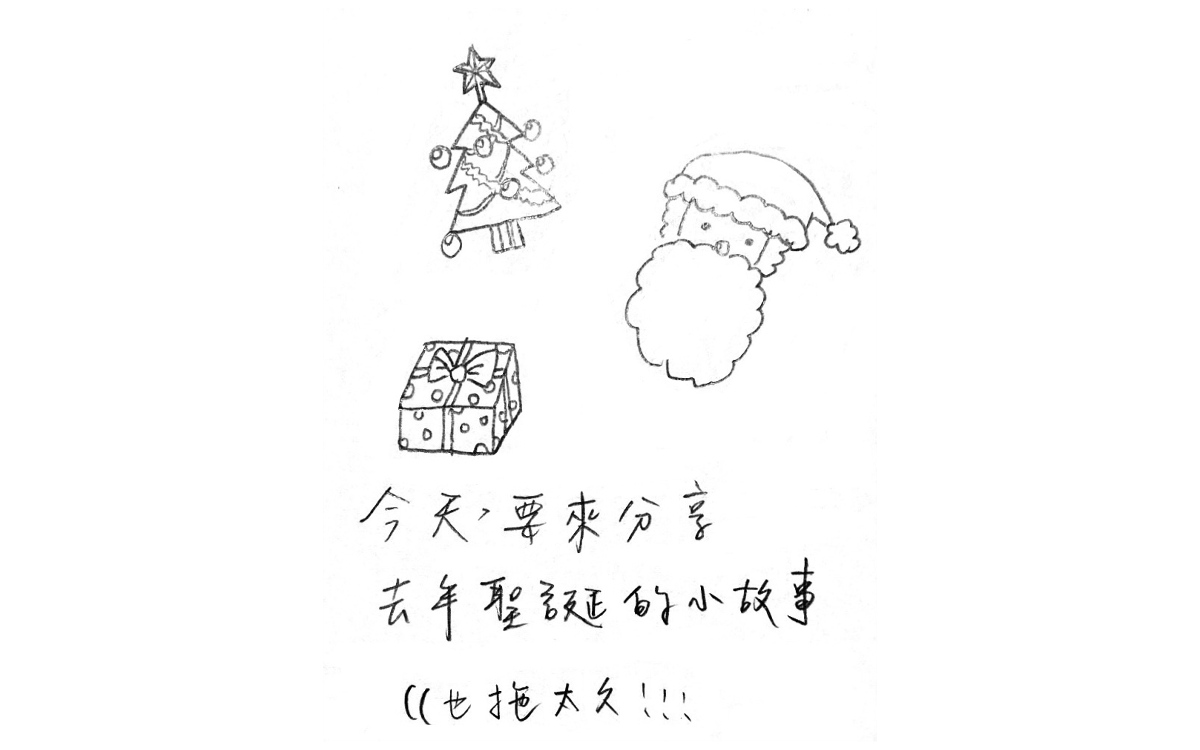 今天，要來分享
去年聖誕的小故事
((也拖太久!!!